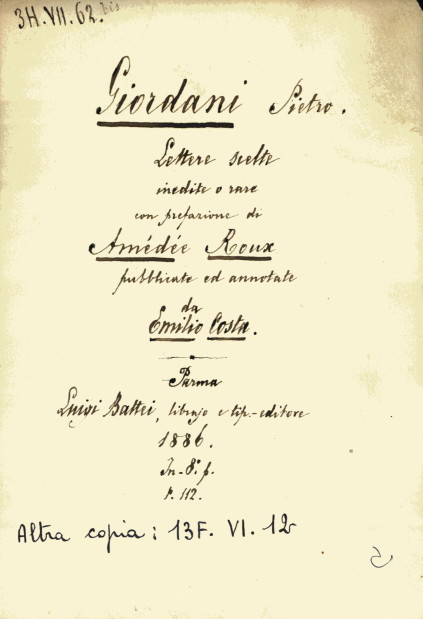 3H.VII.62.bis
Giordani Pietro.
Lettere scelte
inedite o rare
con prefazione di
Amédée Roux
pubblicate ed annotate
da
Emilio Costa.
Parma
Luigi Battei, librajo e tip.-editore
1886.
In-8°. p.
P. 112.
Altra copia : 13F. VI. 12